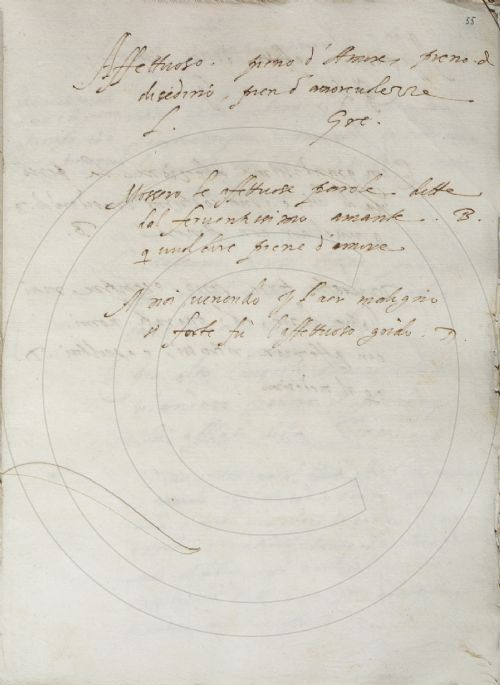 55
Affettuoso. pieno d'Amore, pieno. d
disederio, pien d'amoreulezze
L. Gre.
Mossero le affettuose parole dette
dal feruentissimo amante. B.
q. uuol dire piene d'amore
A noi uenendo p l'aer maligno
sì forte fù l'affettuoso grido. D.